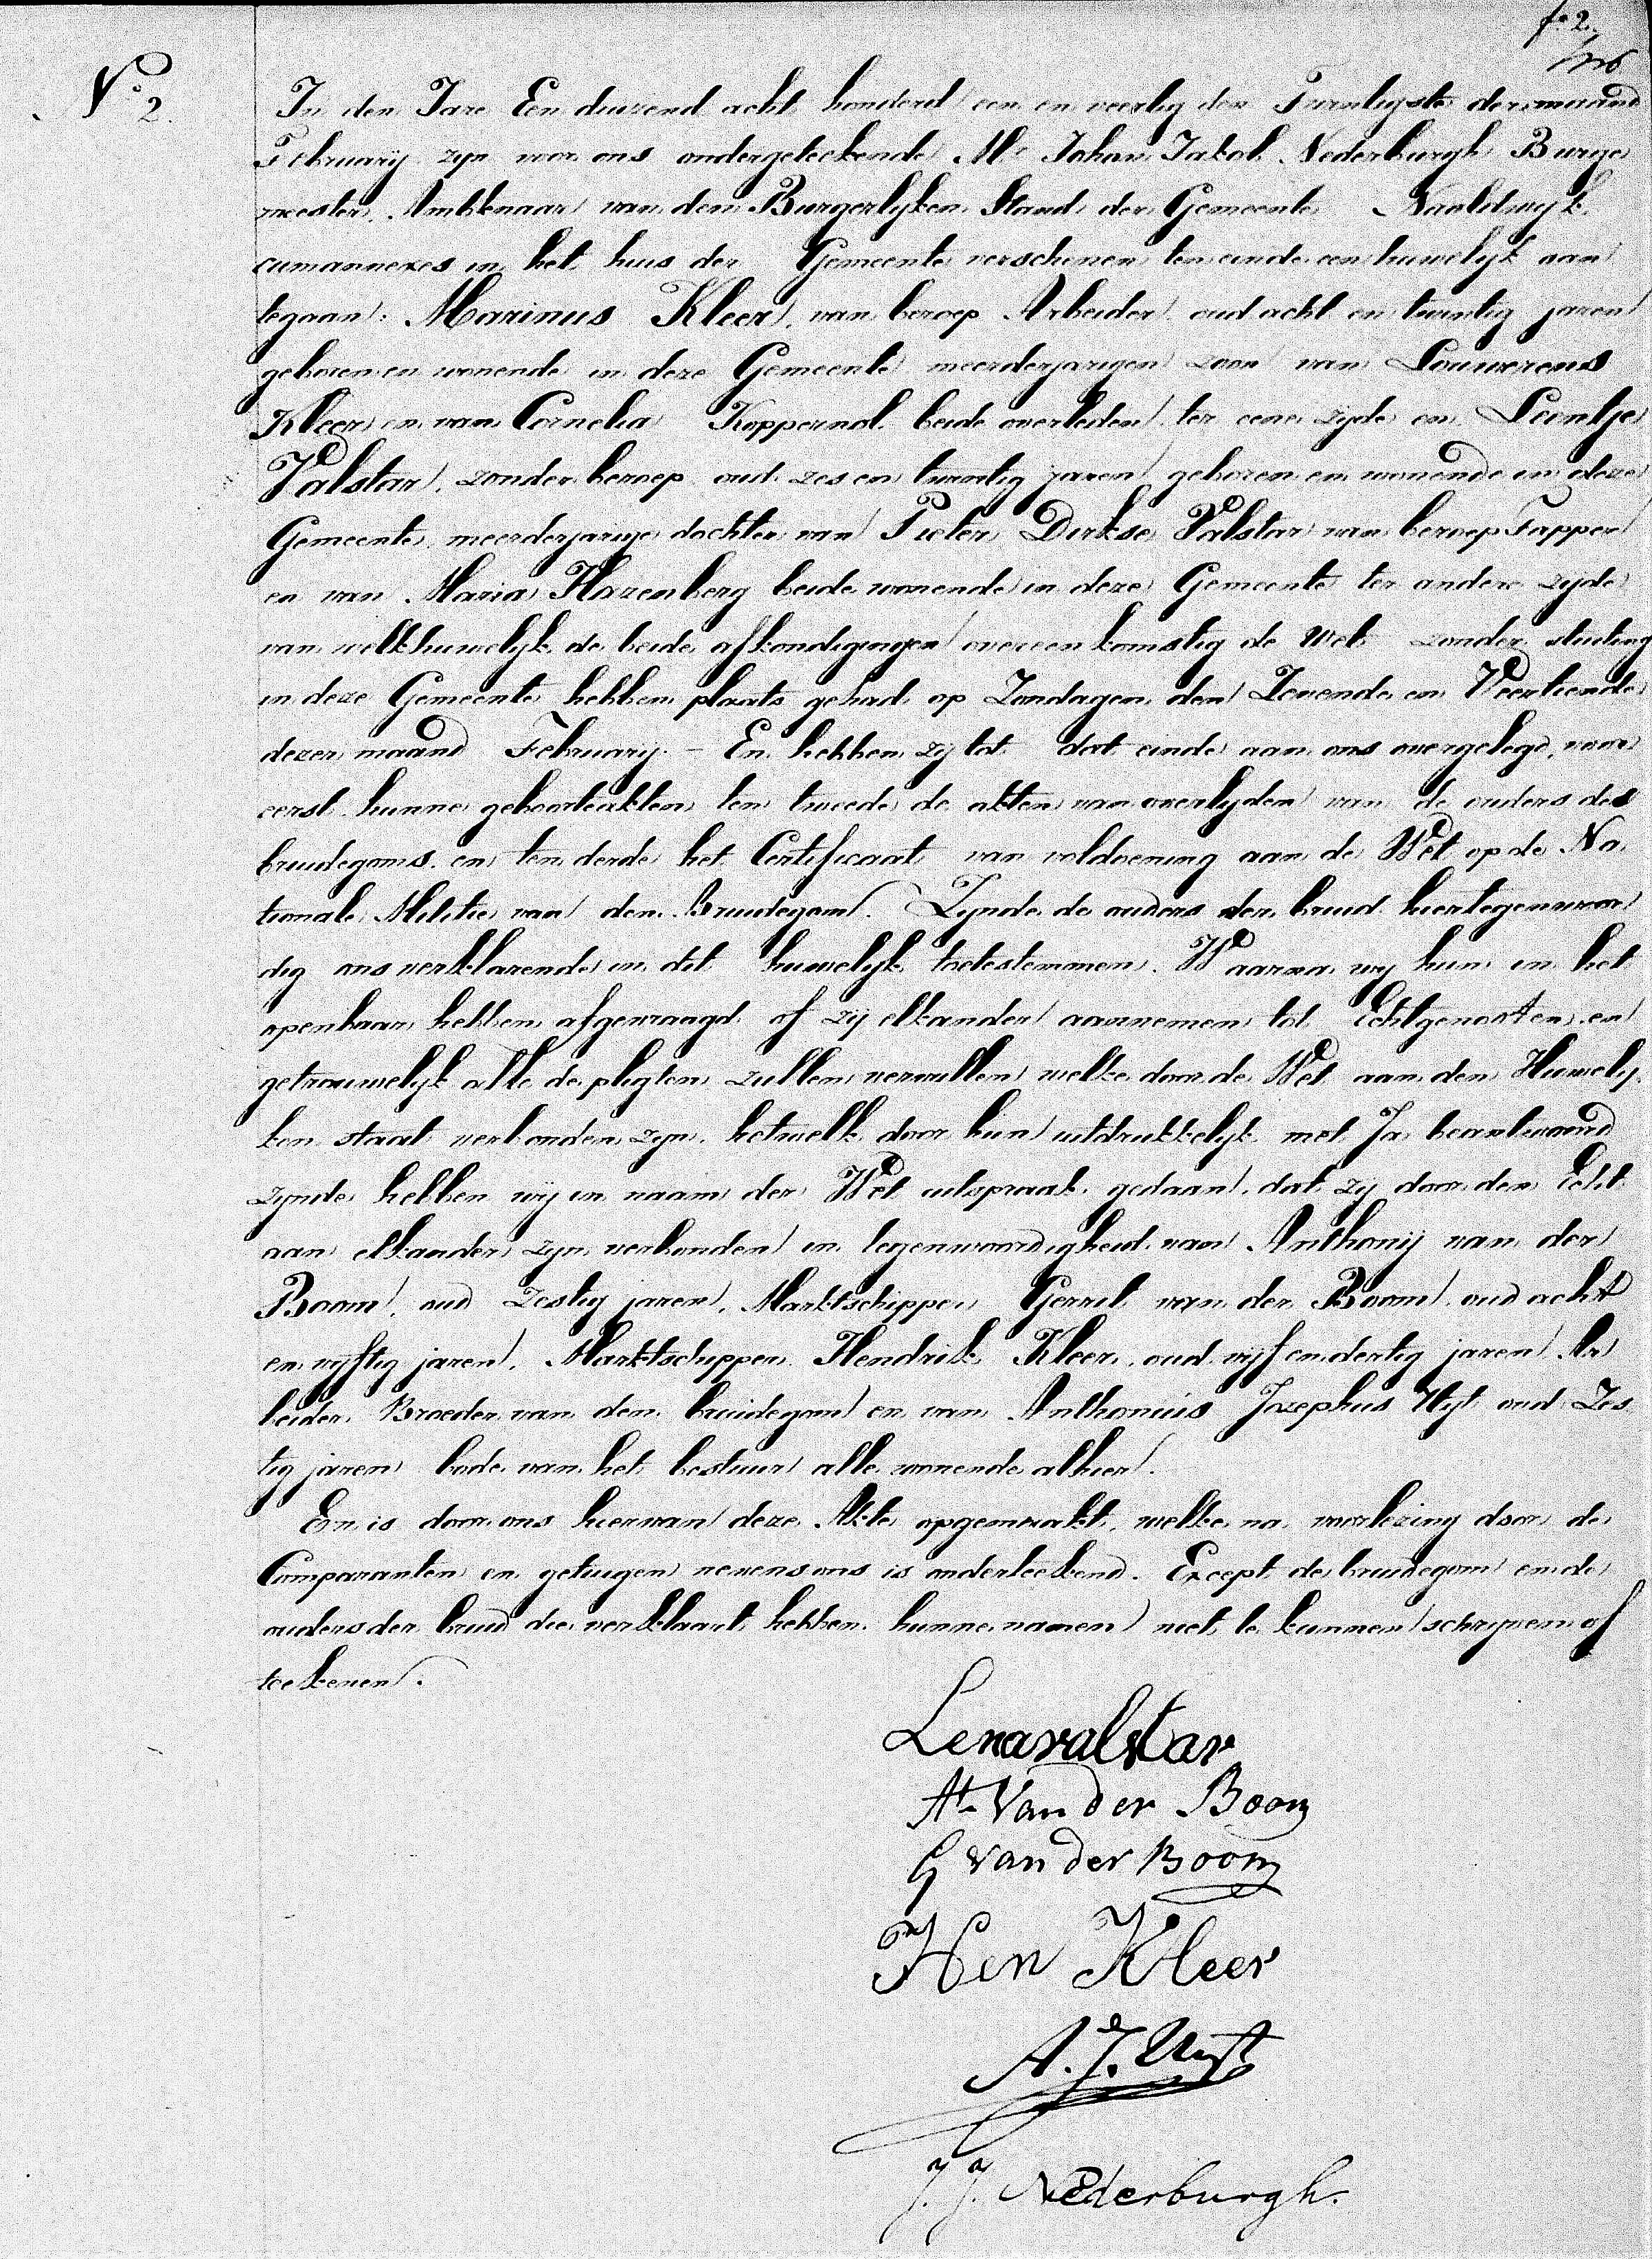 fo 2.
N.o 2.
In den Jare Een duizend acht honderd een en veertig den Twintigste der maand
February zyn voor ons ondergeteekende Mr Johan Jakob Nederburgh Burge
meester, Ambtenaar van den Burgerlyken Stand der Gemeente Naaldwyk
cumannexes in het huis der Gemeente verschenen ten einde een huwelyk aan
tegaan: Marinus Kleer, van beroep Arbeider, oud acht en twintig jaren
geboren en wonende in deze Gemeente meerderjarigen zoon van Louwerens
Kleer en van Cornelia Koppernol beide overleden, ter eene zyde en Leentje
Valstar, zonder beroep oud zes en twintig jaren geboren en wonende in deze
Gemeente, meerderjarige dochter van Pieter Dirkse Valstar van beroep Tapper
en van Maria Harenberg beide wonende in deze Gemeente ter andere zyde
van welk huwelyk de beide afkondigingen overeenkomstig de Wet zonder stuiting
in deze Gemeente hebben plaats gehad op Zondagen den Zevende en Veertiende
dezer maand February. – En hebben zy tot dat einde aan ons overgelegd, voor
eerst hunne geboorteakten, ten tweede de akten van overlyden van de ouders des
bruidegoms en ten derde het Certificaat van voldoening aan de Wet op de Na
tionale Militie van den Bruidegom. Zynde de ouders der bruid hiertegenwoor
dig ons verklarende in dit huwelyk toetestemmen. Waarna wy hun in het
openbaar hebben afgevraagd of zy elkander aannemen tot Echtgenooten en
getrouwelyk alle de pligten zullen vervullen welke door de Wet aan den Huwely
ken staat verbonden zyn. hetwelk door hun uitdrukkelyk met Ja beantwoord
zynde hebben wy in naam der Wet uitspraak gedaan, dat zy door den Echt
aan elkander zyn verbonden in tegenwoordigheid van Anthony van der
Boom, oud Zestig jaren, Marktschipper, Gerrit van der Boom, oud acht
en vyftig jaren, Marktschipper, Hendrik Kleer, oud vyf en dertig jaren Ar
beider, Broeder van den bruidegom en van Anthonius Josephus Uyt oud Zes
tig jaren bode van het bestuur alle wonende alhier.
En is door ons hiervan deze Akte opgemaakt, welke na voorlezing door de
Comparanten en getuigen nevens ons is onderteekend. Except de bruidegom en de
ouders der bruid die verklaart hebben hunne namen niet te kunnen schryven of
teekenen.
Lena valstar
At Van der Boom
G van der Boom
Hen Kleer
A. J. Uyt
J. J. Nederburgh.